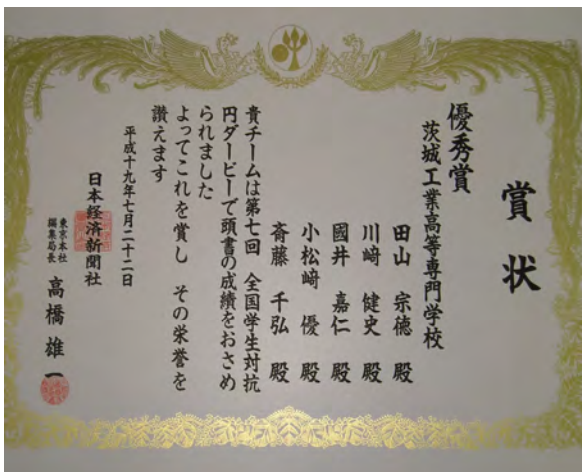 賞状
優秀賞
茨城工業高等専門学校
田山 宗徳 殿
川﨑 健史 殿
國井 嘉仁 殿
小松﨑 優 殿
斎藤 千弘 殿
貴チームは第七回 全国学生対抗
円ダービーで頭書の成績をおさめ
られました
よってこれを賞し その栄誉を
讃えます
平成十九年七月二十二日
日本経済新聞社
東京本社
編集局長
高橋 雄一